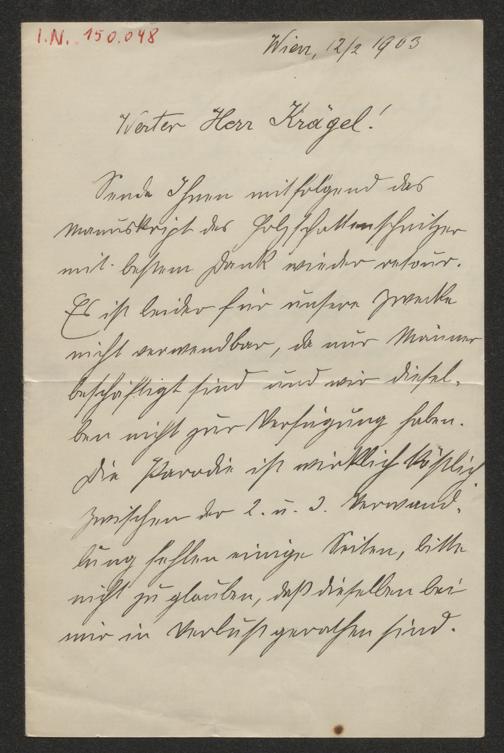 I.N. 150.048
Wien, 12/2 1903
Werter Herr Krägel!
Sende Ihnen mitfolgend das
Manuskript des
mit bestem Dank wieder retour.
Es ist leider für unsere Zwecke
nicht verwendbar, da nur Männer
beschäftigt sind und wir diesel-
ben nicht zur Verfügung haben.
Die Parodie ist wirklich köstlich
zwischen der 2. u. 3. Verwand-
lung fehlen einige Seiten, bitte
nicht zu glauben, daß dieselben bei
mir in Verlust gerathen sind.